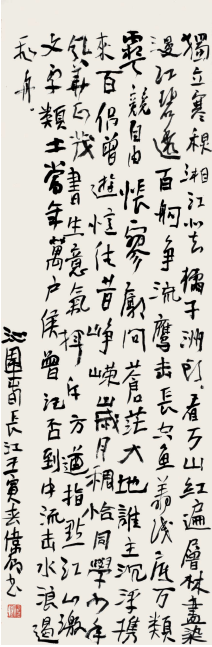 獨立寒秋湘江北去橘子洲头看万山红遍層林盡染
漫江碧透百舸争流鹰击長空鱼翔浅底万類
霜天競自由悵寥廓问蒼茫大地誰主沉浮携
來百侣曾遊憶往昔崢嶸歲月稠恰同學少年
風華正茂書生意氣揮斥方遒指點江山激
文字糞土當年萬户侯曾記否到中流击水浪遏
飛舟
沁園春長江壬寅春偉書